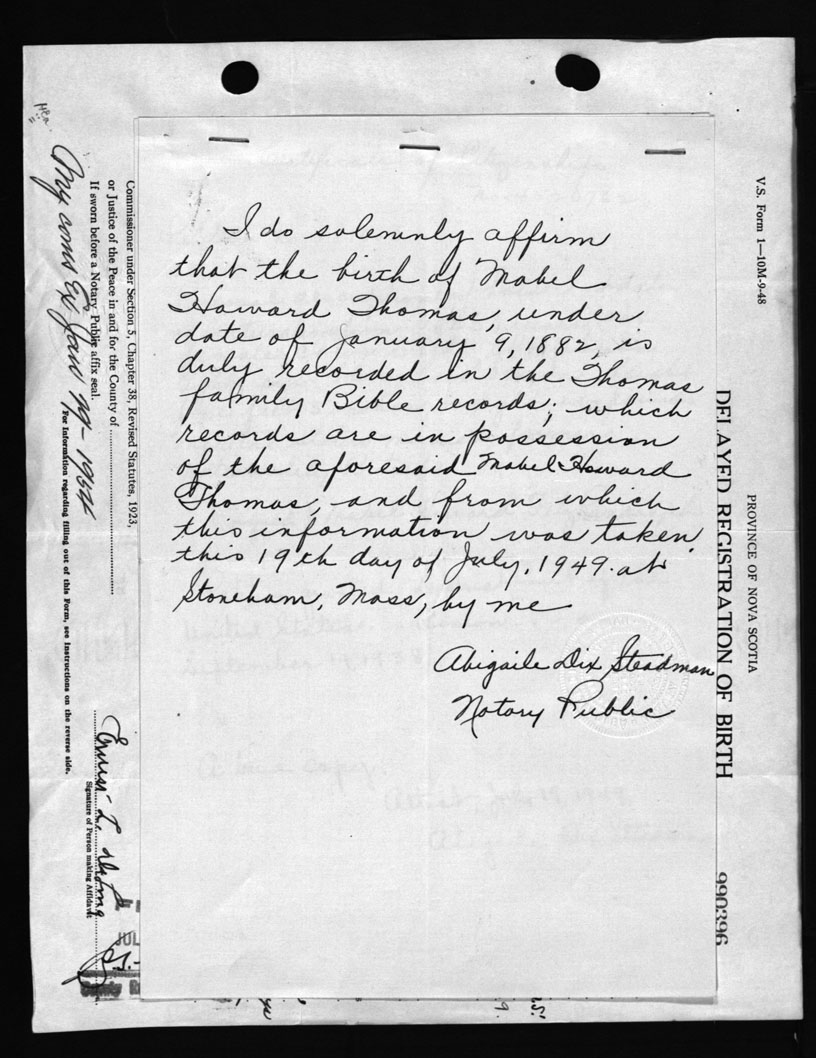 I do solemnly affirm
that the birth of Mabel
Howard Thomas, under
date of January 9, 1882, is
duly recorded in the Thomas
family Bible records; which
records are in possession
of the aforesaid Mabel Howard
Thomas, and from which
this information was taken
this 19th day of July, 1949. at
Stoneham, Mass, by me
Abigaile Dix Steadman
Notary Public
V.S. Form 1—10M-9-48
PROVINCE OF NOVA SCOTIA
DELAYED REGISTRATION OF BIRTH
990396
Commissioner under Section 5, Chapter 38, Revised Statutes, 1923,
or Justice of the Peace in and for the County of
If sworn before a Notary Public affix seal.
My coms Ex Jan
For Information regarding filling out of this Form, see Instructions on the reverse side.
Signature of Person making Affidavit
JUL